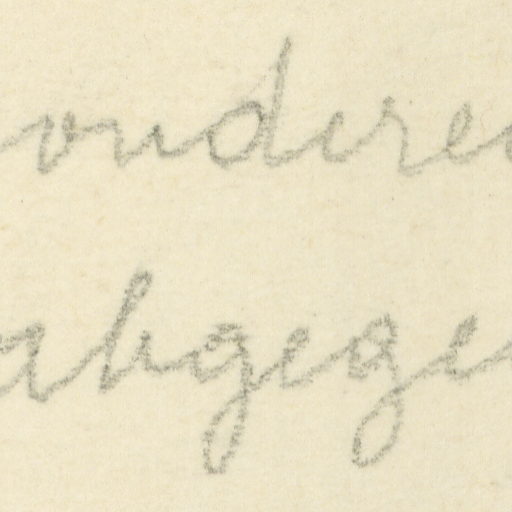 ondere
abgege